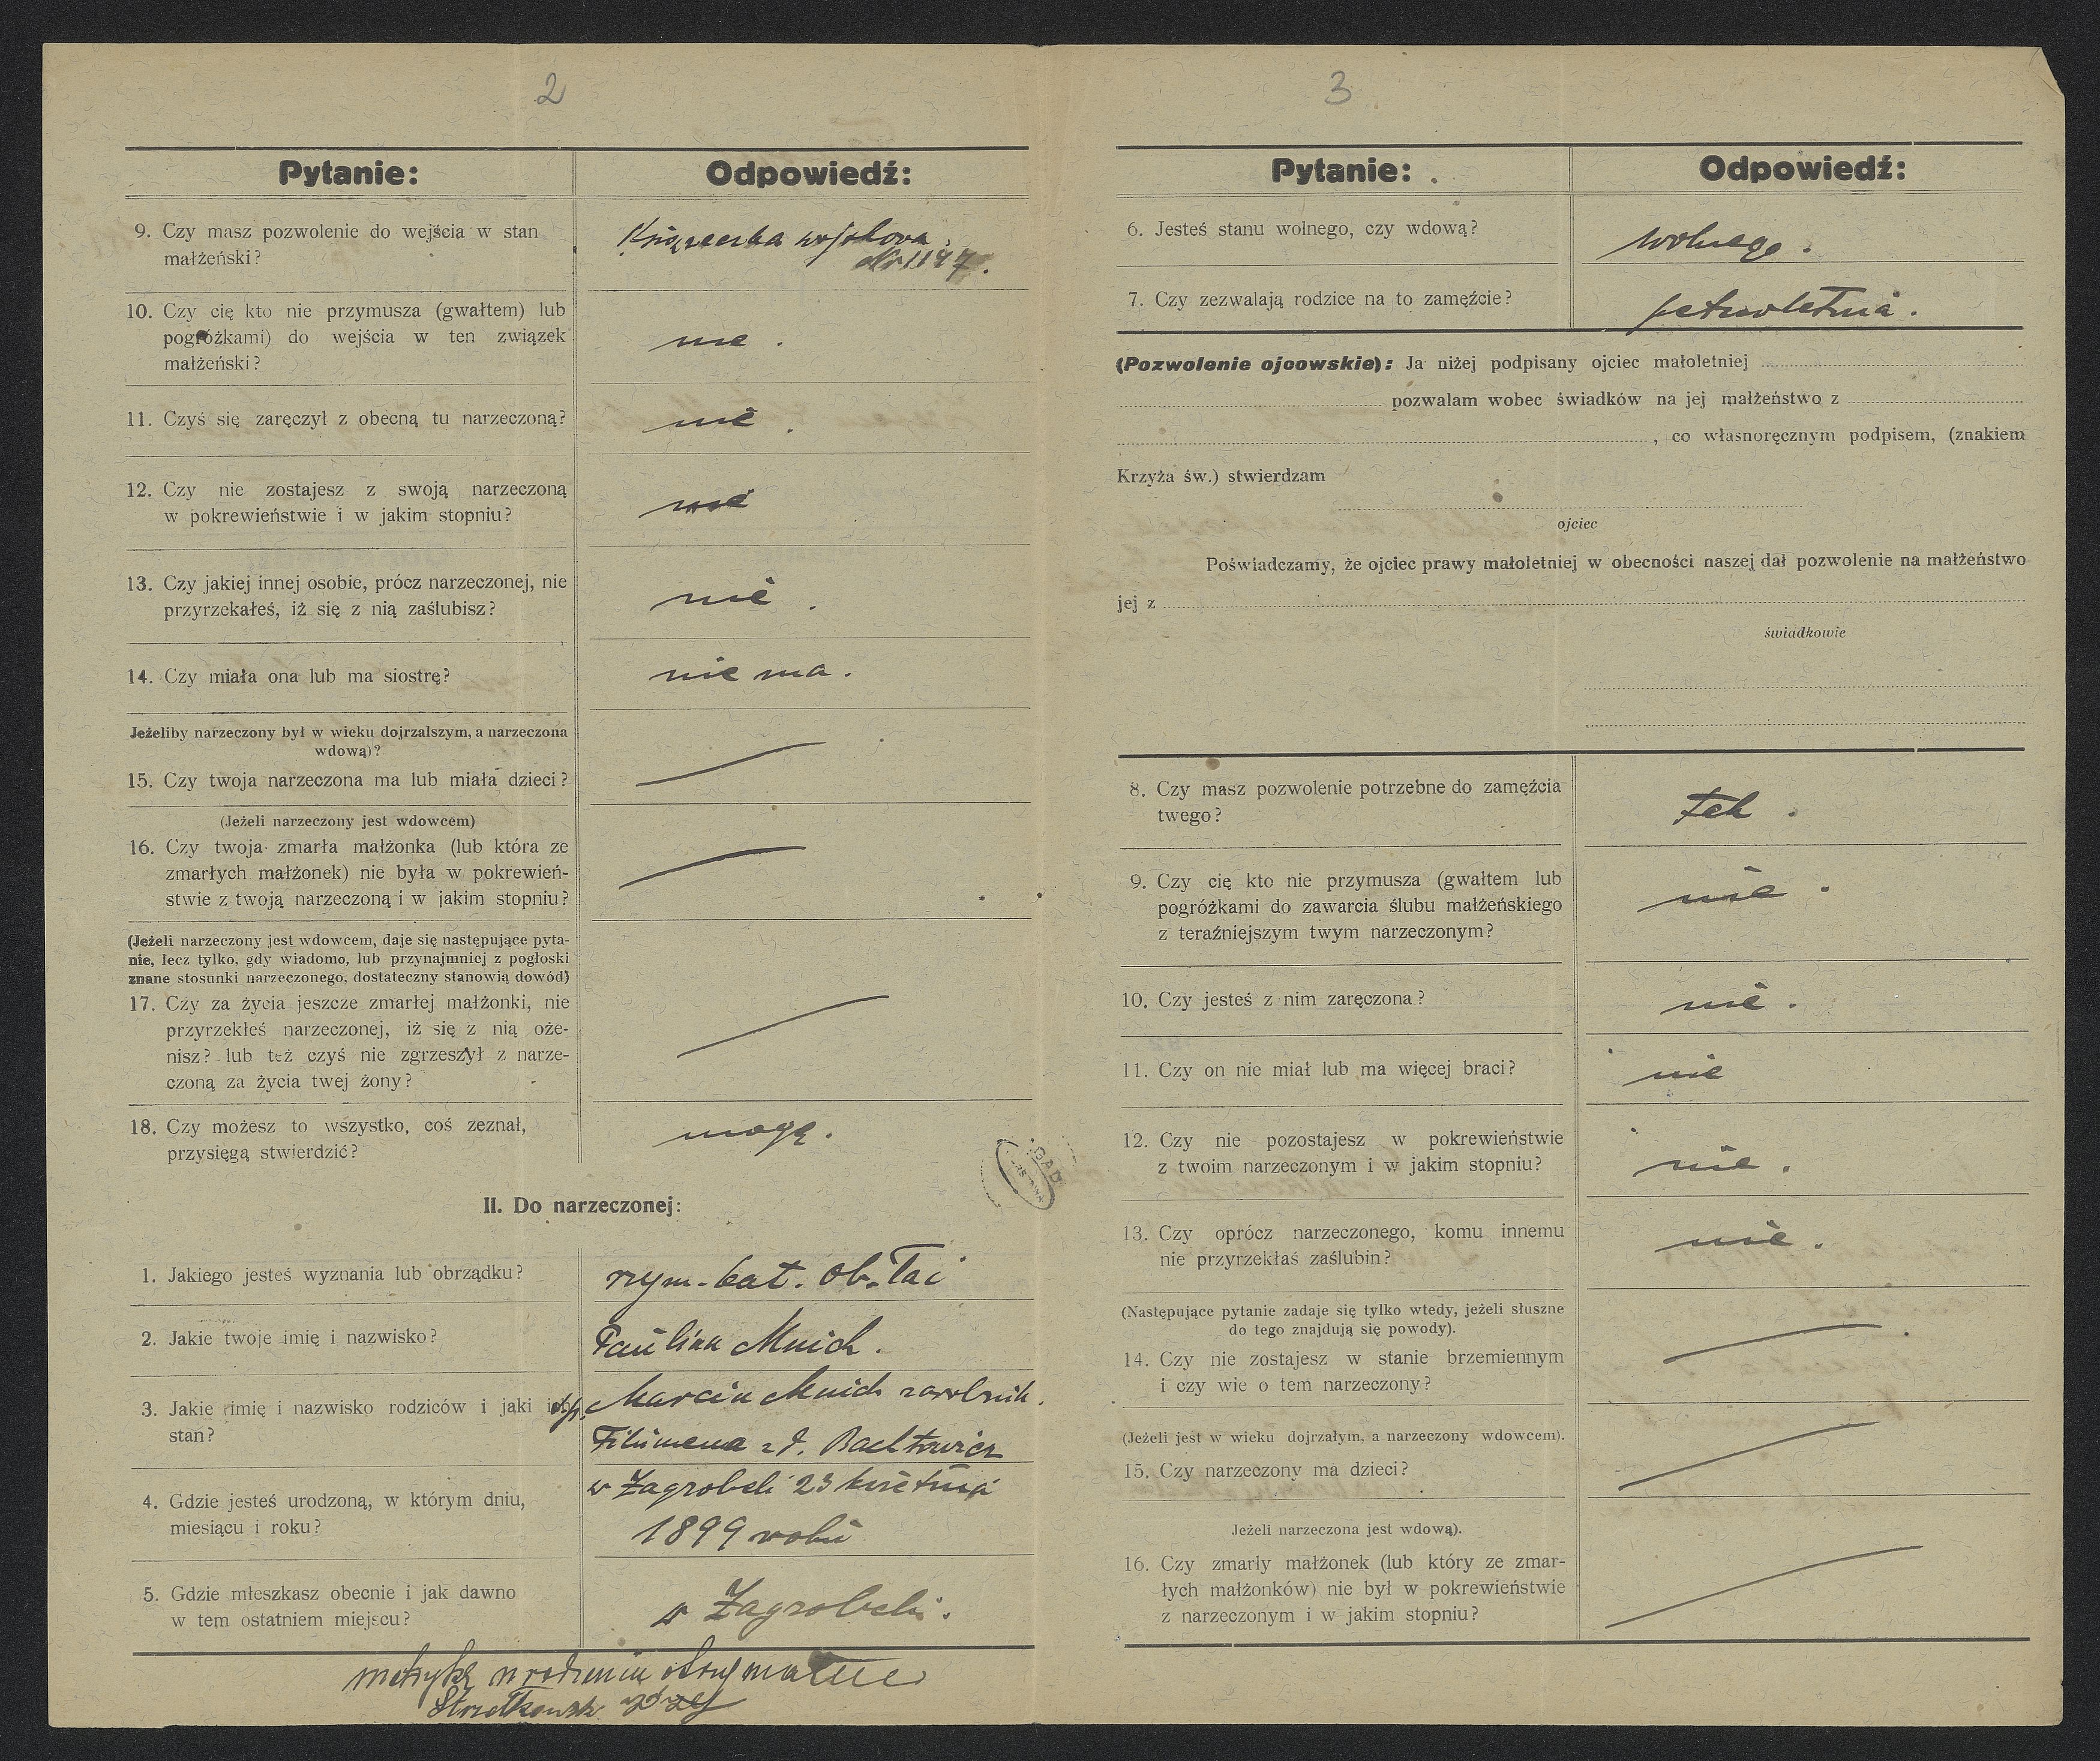 2
Pytanie:
Odpowiedź:
9. Czy masz pozwolenie do wejścia w stan
małżeński?
Książeczka wojskowa
10. Czy cię kto nie przymusza (gwałtem) lub
pogróżkami) do wejścia w ten związek
małżeński?
nie.
11. Czyś się zaręczył z obecną tu narzeczoną?
nie.
12. Czy nie zostajesz z swoją narzeczoną
w pokrewieństwie i w jakim stopniu?
nie
13. Czy jakiej innej osobie, prócz narzeczonej, nie
przyrzekałeś, iż się z nią zaślubisz?
nie.
14. Czy miała ona lub ma siostrę?
nie ma.
Jeżeliby narzeczony był w wieku dojrzalszym, a narzeczona
wdową)?
15. Czy twoja narzeczona ma lub miała dzieci?
(Jeżeli narzeczony jest wdowcem)
16. Czy twoja zmarła małżonka (lub która ze
zmarłych małżonek) nie była w pokrewień-
stwie z twoją narzeczoną i w jakim stopniu?
(Jeżeli narzeczony jest wdowcem, daje się następujące pyta-
nie, lecz tylko, gdy wiadomo, lub przynajmniej z pogłoski
znane stosunki narzeczonego, dostateczny stanowią dowód)
17. Czy za życia jeszcze zmarłej małżonki, nie
przyrzekłeś narzeczonej, iż się z nią oże-
nisz? lub też czyś nie zgrzeszył z narze-
czoną za życia twej żony?
18. Czy możesz to wszystko, coś zeznał,
przysięgą stwierdzić?
mogę.
II. Do narzeczonej:
1. Jakiego jesteś wyznania lub obrządku?
rzym.-kat. ob. łać
2. Jakie twoje imię i nazwisko?
Paulina Mnich.
3. Jakie imię i nazwisko rodziców i jaki ich
stan?
śp. Marcin Mnich zarobnik.
Filomena z d.
4. Gdzie jesteś urodzoną, w którym dniu,
miesiącu i roku?
w Zagrobeli 23 kwietnia
1899 roku
5. Gdzie mieszkasz obecnie i jak dawno
w tem ostatniem miejscu?
w Zagrobeli.
metrykę urodzenia otrzymałem
3
Pytanie:
Odpowiedź:
6. Jesteś stanu wolnego, czy wdową?
wolnego.
7. Czy zezwalają rodzice na to zamęźcie?
pełnoletnia.
(Pozwolenie ojcowskie): Ja niżej podpisany ojciec małoletniej
pozwalam wobec świadków na jej małżeństwo z
, co własnoręcznym podpisem, (znakiem
Krzyża św.) stwierdzam
ojciec
Poświadczamy, że ojciec prawy małoletniej w obecności naszej dał pozwolenie na małżeństwo
jej z
świadkowie
8. Czy masz pozwolenie potrzebne do zamęźcia
twego?
tak.
9. Czy cię kto nie przymusza (gwałtem lub
pogróżkami do zawarcia ślubu małżeńskiego
z teraźniejszym twym narzeczonym?
nie.
10. Czy jesteś z nim zaręczona?
nie.
11. Czy on nie miał lub ma więcej braci?
nie
12. Czy nie pozostajesz w pokrewieństwie
z twoim narzeczonym i w jakim stopniu?
nie.
13. Czy oprócz narzeczonego, komu innemu
nie przyrzekłaś zaślubin?
nie.
(Następujące pytanie zadaje się tylko wtedy, jeżeli słuszne
do tego znajdują się powody).
14. Czy nie zostajesz w stanie brzemiennym
i czy wie o tem narzeczony?
(Jeżeli jest w wieku dojrzałym, a narzeczony wdowcem).
15. Czy narzeczony ma dzieci?
Jeżeli narzeczona jest wdową).
16. Czy zmarły małżonek (lub który ze zmar-
łych małżonków) nie był w pokrewieństwie
z narzeczonym i w jakim stopniu?